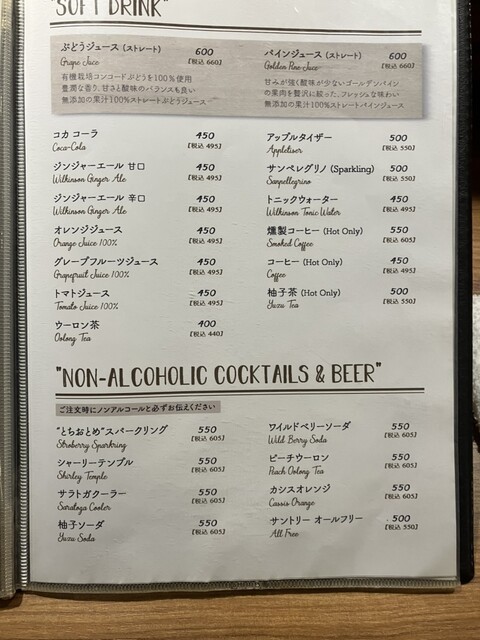 "SOFT DRINK"
ぶどうジュース (ストレート) 600
Grape Juce 【税込 660】
有機栽培コンコードぶどうを100%使用
豊潤な香り、甘さと酸味のバランスも良い
無添加の果汁100%ストレートぶどうジュース
パインジュース (ストレート) 600
Golden Pine Juce 【税込 660】
甘みが強く酸味が少ないゴールデンパイン
の果肉を贅沢に絞った、フレッシュな味わい
無添加の果汁100%ストレートパインジュース
コカ コーラ 450
Coca-Cola 【税込 495】
ジンジャーエール 甘口 450
Wilkinson Ginger Ale 【税込 495】
ジンジャーエール 辛口 450
Wilkinson Ginger Ale 【税込 495】
オレンジジュース 450
Orange Juice 100% 【税込 495】
グレープフルーツジュース 450
Grapefruit Juice 100% 【税込 495】
トマトジュース 450
Tomato Juice 100% 【税込 495】
ウーロン茶 400
Oolong Tea 【税込 440】
アップルタイザー 500
Appletiser 【税込 550】
サンペレグリノ (Sparkling) 500
Sanpellegrino 【税込 550】
トニックウォーター 450
Wilkinson Tonic Water 【税込 495】
燻製コーヒー (Hot Only) 550
Smoked Coffee 【税込 605】
コーヒー (Hot Only) 450
Coffee 【税込 495】
柚子茶 (Hot Only) 500
Yuzu Tea 【税込 550】
"NON-ALCOHOLIC COCKTAILS & BEER"
ご注文時にノンアルコールと必ずお伝えください
"とちおとめ"スパークリング 550
Stroberry Sparkring 【税込 605】
シャーリーテンプル 550
Shirley Temple 【税込 605】
サラトガクーラー 550
Saratoga Cooler 【税込 605】
柚子ソーダ 550
Yuzu Soda 【税込 605】
ワイルドベリーソーダ 550
Wild Berry Soda 【税込 605】
ピーチウーロン 550
Peach Oolong Tea 【税込 605】
カシスオレンジ 550
Cassis Orange 【税込 605】
サントリー オールフリー 500
All Free 【税込 550】